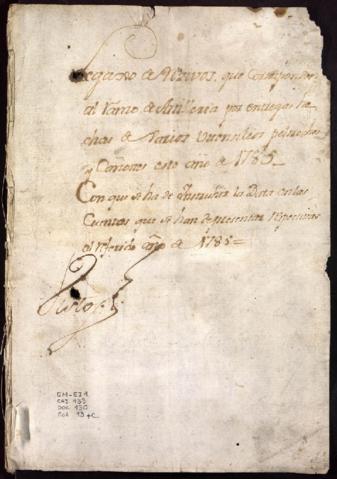 Legaxo de Rivos, que Corresponden
al Ramo de Artilleria por entregas he
chas de Varios Utensilios pertrechos
y Cañones este año de 1785.
Con que se ha de Instruir la Data en las
Cuentas que se han de presentar respectivas
al referido año de 1785=
GM-E21
CAJ 133
DOC 130
FOL 13 +C